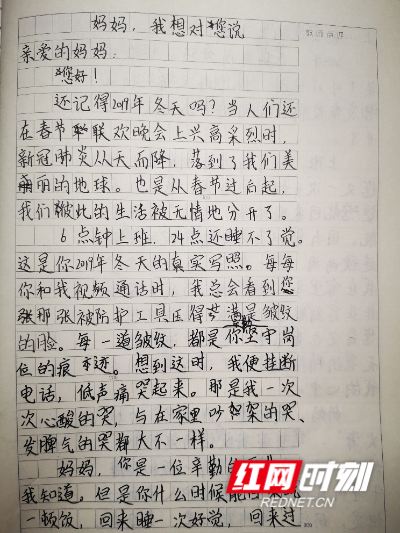 妈妈，我想对您说
亲爱的妈妈：
您好！
还记得2019年冬天吗？当人们还
在春节联欢晚会上兴高采烈时，
新冠肺炎从天而降，落到了我们美
丽的地球。也是从春节过后起，
我们彼此的生活被无情地分开了。
6点钟上班，24点还睡不了觉。
这是你2019年冬天的真实写照。每每
你和我视频通话时，我总会看到您
那张被防护工具压得满是皱纹
的脸。每一道皱纹，都是你坚守岗
位的痕迹。想到这时，我便挂断
电话，低声痛哭起来。那是我一次
次心酸的哭，与在家里吵架的哭、
发脾气的哭都大不一样。
妈妈，你是一位辛勤的
我知道。但是你什么时候能
一顿饭，回来睡一次好觉，回来过
红网时刻
REDNET.CN